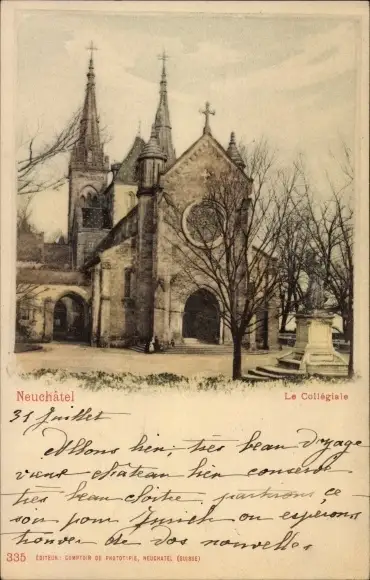 Neuchâtel
Le Collégiale
31 Juillet
Allons bien, très beau voyage
vieux château bien conservé
très beau cloître, partirons ce
soir pour Zurich ou espérons
trouver de vos nouvelles.
335 ÉDITEUR: COMPTOIR DE PHOTOTYPIE, NEUCHÂTEL (SUISSE)